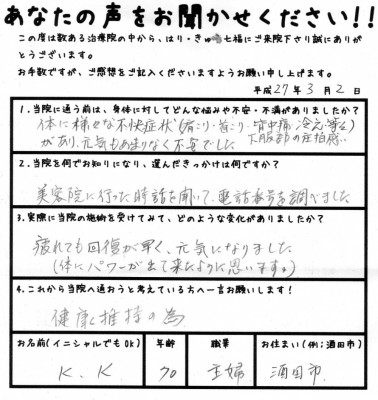 あなたの声をお聞かせください!!
この度は数ある治療院の中から、はり・きゅう七福にご来院下さり誠にありが
とうございます。
お手数ですが、ご感想をご記入くださいますようお願い申し上げます。
平成27年3月2日
1.当院に通う前は、身体に対してどんな悩みや不安・不満がありましたか?
体に様々な不快症状(肩こり・首こり・背中痛 冷え
があり、元気もあまりなく不安でした 下腹部の圧迫感
2.当院を何でお知りになり、選んだきっかけは何ですか?
美容院に行った時話を聞いて、電話番号を調べました
3.実際に当院の施術を受けてみて、どのような変化がありましたか?
疲れても回復が早く、元気になりました
(体にパワーが出て来たように思います。)
4.これから当院へ通おうと考えている方へ一言お願いします!
健康維持の為
お名前(イニシャルでもOK) 年齢 職業 お住まい(例:酒田市)
K.K 70 主婦 酒田市.